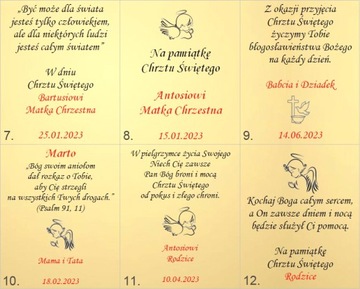 „Być może dla świata
jesteś tylko człowiekiem,
ale dla niektórych ludzi
jesteś całym światem”
W dniu
Chrztu Świętego
Bartusiowi
Matka Chrzestna
7.
25.01.2023
Na pamiątkę
Chrztu Świętego
Antosiowi
Matka Chrzestna
8.
15.01.2023
Z okazji przyjęcia
Chrztu Świętego
życzymy Tobie
błogosławieństwa Bożego
na każdy dzień.
Babcia i Dziadek
9.
14.06.2023
Marto
„Bóg swoim aniołom
dał rozkaz o Tobie,
aby Cię strzegli
na wszystkich Twych drogach.”
(Psalm 91, 11)
Mama i Tata
10.
18.02.2023
W pielgrzymce życia Swojego
Niech Cię zawsze
Pan Bóg broni i mocą
Chrztu Świętego
od pokus i złego chroni.
Antosiowi
Rodzice
11.
10.04.2023
Kochaj Boga całym sercem,
a On zawsze dniem i nocą
będzie służył Ci pomocą.
Na pamiątkę
Chrztu Świętego
Rodzice
12.